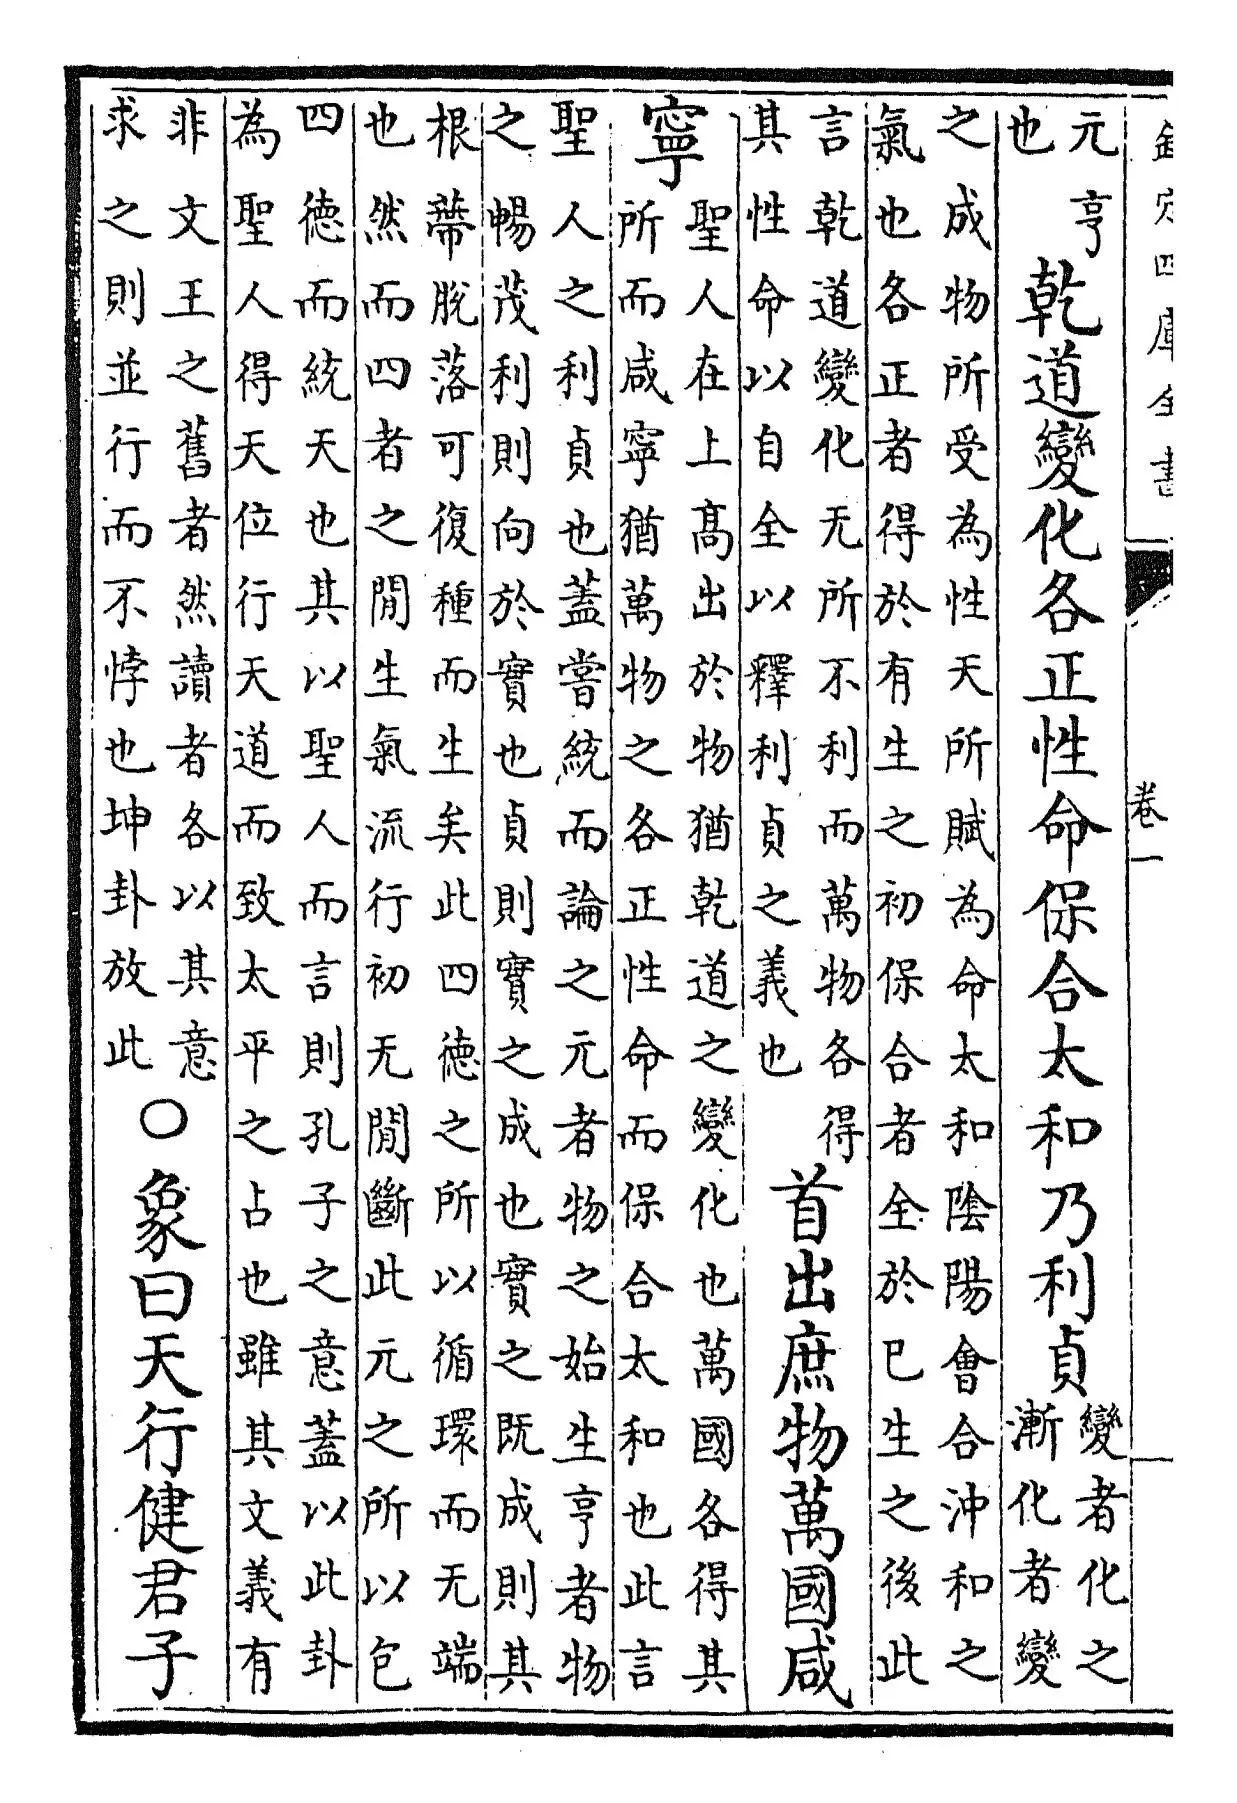 欽定四庫全書 卷一
元亨
也
乾道變化各正性命保合太和乃利貞
變者化之
漸化者變
之成物所受為性天所賦為命太和陰陽會合沖和之
氣也各正者得於有生之初保合者全於已生之後此
言乾道變化无所不利而萬物各得
其性命以自全以釋利貞之義也
首出庶物萬國咸
寧
聖人在上高出於物猶乾道之變化也萬國各得其
所而咸寧猶萬物之各正性命而保合太和也此言
聖人之利貞也蓋嘗統而論之元者物之始生亨者物
之暢茂利則向於實也貞則實之成也實之既成則其
根蒂脫落可復種而生矣此四德之所以循環而无端
也然而四者之閒生氣流行初无閒斷此元之所以包
四德而統天也其以聖人而言則孔子之意蓋以此卦
為聖人得天位行天道而致太平之占也雖其文義有
非文王之舊者然讀者各以其意
求之則並行而不悖也坤卦放此
○象曰天行健君子